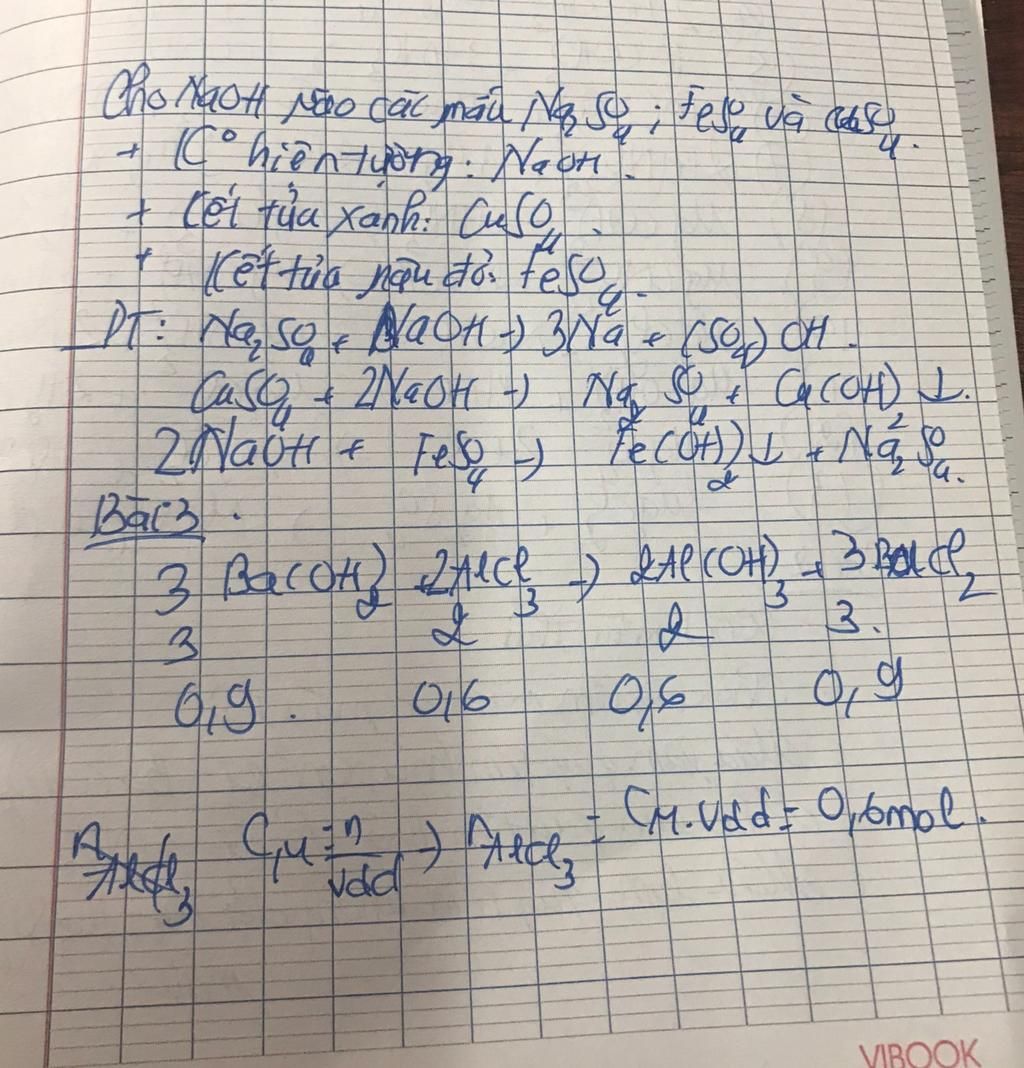 Cho NaOH vào các mẫu Na2SO4; FeSO4 và CuSO4.
+ K° hiện tượng: NaOH.
+ Kết tủa xanh: CuSO4.
+ Kết tủa nâu đỏ: FeSO4.
PT: Na2SO4 + NaOH → 3Na + (SO4)OH.
CuSO4 + 2NaOH → Na2SO4 + Cu(OH)2↓.
2NaOH + FeSO4 → Fe(OH)2↓ + Na2SO4.
Bài 3.
3 Ba(OH)2 2AlCl3 → 2Al(OH)3 + 3BaCl2
3 2 2 3.
0,9. 0,6 0,6 0,9
nAlCl3 CM = n/Vdd → nAlCl3 = CM.Vdd = 0,6mol.
VIBOOK